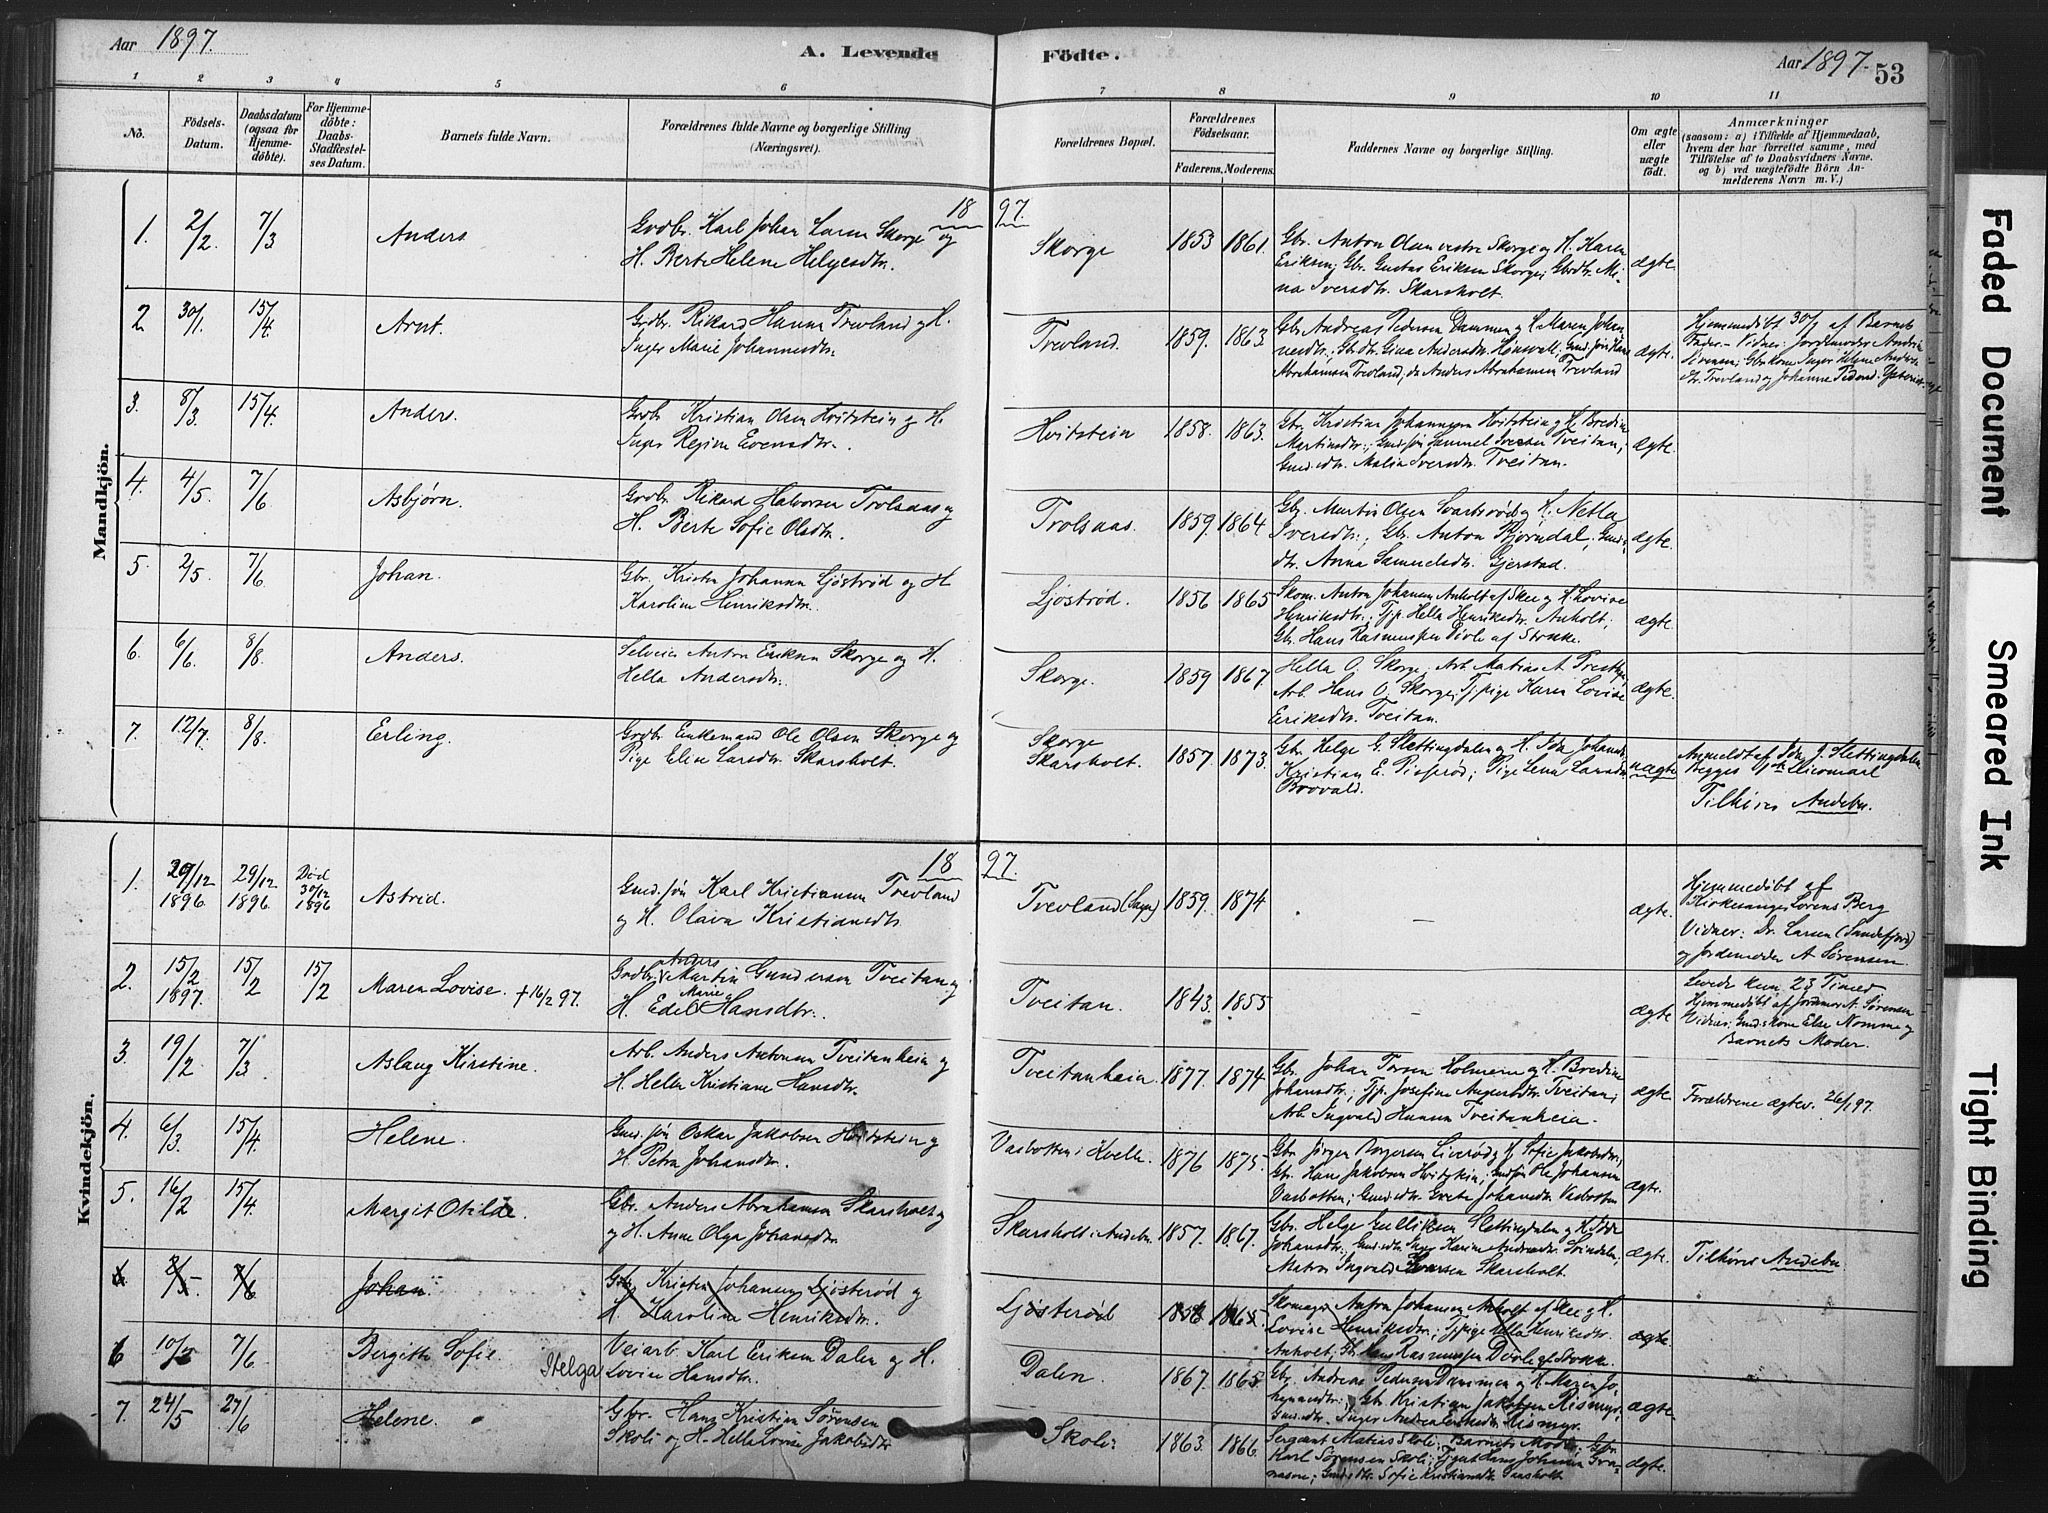 Aar 1897.
A. Levende Födte.
Aar 1897. 53
1 2 3 4 5 6 7 8 9 10 11
No.
Födsels-Datum.
Daabsdatum (ogsaa for Hjemme-döbte).
For Hjemme-döbte: Daabs-Stadfæstel-ses Datum.
Barnets fulde Navn.
Forældrenes fulde Navne og borgerlige Stilling (Næringsvei).
Forældrenes Bopæl.
Forældrenes Födselsaar.
Faderens. Moderens.
Faddernes Navne og borgerlige Stilling.
Om ægte eller uægte födt.
Anmærkninger
(saasom: a) i Tilfælde af Hjemmedaab, hvem der har forrettet samme, med Tilföielse af to Daabsvidners Navne. og b) ved uægtefödte Börn An-melderens Navn m. V.)
Mandkjön.
18 97.
1. 2/2. 7/3 Anders
Grdbr. Karl Johan Larsen Skorge og
H. Berte Helene Helgesdtr.
Skorge 1853 1861.
Gbr. Anton Olsen vestre Skorge og H. Karen
Eriksen; Gbr. Gustav Eriksen Skorge; Gbrdtr. Mi-
na Iversdtr. Skarsholt.
ægte.
2. 30/1. 15/4. Arnt.
Grdbr. Rikard Hansen Trevland og H.
Inger Marie Johannesdtr.
Trevland. 1859. 1863
Gbr. Andreas Pedersen Dammen og H. Maren Johan
nesdtr.; Gbrdtr. Gina Andersdtr. ; Gmd.søn Hans
Abrahamsen Trevland, do Anders Abrahamsen Trevland
ægte.
Hjemmedøbt 30/1 af Barnets
Fader – Vidner: Jordmoder Andrea
Sørensen; Gbrkone Inger Helene Anders
dtr. Trevland og Johanne
3. 8/3 15/4. Anders.
Grdbr. Kristian Olsen Hvitstein og H.
Inger Regine Evensdtr.
Hvitstein 1858. 1863.
Gbr. Kristian Johannesen Hvitstein og H. Bredine
Martinsdtr.; Gmd.søn Samuel Iversen Tveitan;
Gmd.dtr. Malin Iversdtr. Tveitan.
ægte.
4. 4/5. 7/6 Asbjørn.
Grdbr. Rikard Halvorsen Trolsaas og
H. Berte Sofie Olsdtr.
Trolsaas. 1859. 1864
Gbr. Martin Olsen Svartsrød og H. Netla
Iversdtr.; Gbr. Anton Bjørndal; Gmd.
dtr. Anna Samuelsdtr. Gjerstad.
ægte.
5. 2/5. 7/6 Johan.
Gbr. Kristen Johansen Ljøstrød og H
Karoline Henriksdtr.
Ljøstrød. 1856 1865
Skom. Anton Johansen Anholt af Skee og H. Lovise
Henriksdtr.; Tjp. Hella Henriksdtr. Anholt;
Gbr. Hans Rasmussen af Stokke.
ægte.
6. 6/6. 8/8. Anders.
Selveier Anton Eriksen Skorge og H.
Hella Andersdtr.
Skorge. 1859 1867.
Hella O. Skorge; Arb. Matias A.
Arb. Hans O. Skorge; Tjpige Karen Lovise
Eriksdtr. Tveitan.
ægte.
7. 12/7. 8/8. Erling.
Grdbr. Enkemand Ole Olsen Skorge og
Pige Elise Larsdtr. Skarsholt.
Skorge
Skarsholt. 1857. 1873.
Gbr. Helge G. Slettingdalen og H. Ida Johansdtr.
Kristian E. ; Pige Lena Larsdtr.
uægte
Anmeldt af Ida J. Slettingdalen
Begges 1ste Leiermaal
Tilhører Andebu.
Kvindekjön.
18 97.
1. 29/12 1896. 29/12 1896. Død 30/12 1896 Astrid.
Gmd.søn Karl Kristiansen Trevland
og H. Olava Kristiansdtr.
Trevland 1859. 1874
–
ægte.
Hjemmedøbt af
Kirkesanger Lorens Berg
Vidner: Dr. Larsen (Sandefjord)
og Jordemoder A Sørensen.
2. 15/2 1897. 15/2 15/2 Maren Lovise. + 16/2 97.
Anders
Grdbr. Martin Gundersen Tveitan og
Marie
H. Edel Hansdtr.
Tveitan. 1843. 1855
–
ægte
Levede kun 23 Timer
Hjemmedøbt af Jordmor A. Sørensen
Vidner: Gmd.skone Else Nomme og
Barnets Moder.
3. 19/2 7/3. Aslaug Kirstine.
Arb. Anders Antonsen Tveitanheia og
H. Hella Kristiane Hansdtr.
Tveitanheia. 1877. 1874
Gbr. Johan Torsen Holmen og H. Bredine
Johansdtr.; Tjp. Josefine Augustdtr. Tveitan;
Arb. Ingvald Hansen Tveitanheia.
ægte.
Forældrene ægtev. 26/1 97.
4. 6/3 15/4. Helene.
Gmd.søn Oskar Jakobsen Hvitstein og
H. Petra Johansdtr.
Vasbotten i Kvelle. 1876 1875.
Gbr. Jørgen Borgersen Liverød og H. Sofie Jakobsdtr.;
Gbr. Hans Jakobsen Hvitstein; Gmdsøn Ole Johansen
Vasbotten; Gmd.dtr. Grete Johansdtr. Vasbotten
ægte.
5. 16/2 15/4. Margit Otilde.
Gbr. Anders Abrahamsen Skarsholt og
og H. Anne Olga Johansdtr.
Skarsholt i Andebu. 1857. 1867.
Gbr. Helge Gulliksen Slettingdalen og H. Ida
Johansdtr.; Gmd.dtr. Inger Karine Andersdtr. ;
Matros Ingvald Iversen Skarsholt.
ægte.
Tilhører Andebu.
6. 2/5. 7/6 Johan
Gbr. Kristen Johansen Ljøsterød og
H. Karoline Henriksdtr.
Ljøsterød 1856 1865.
Skomager Anton Johansen Anholt af Skee og H.
Lovise Henriksdtr.; Tjpige Hella Henriksdtr.
Anholt; Gbr. Hans Rasmussen af Stokke.
ægte.
6 10/5 7/6 Bergitte Sofie. Helga
Veiarb. Karl Eriksen Dalen og H.
Lovise Hansdtr.
Dalen. 1867. 1865.
Gbr. Andreas Pedersen Dammen og H. Maren Jo-
hannesdtr.; Gbr. Kristian Jakobsen Rismyr;
Gmd.dtr. Inger Andrea Rismyr.
ægte.
7. 24/5 27/6 Helene.
Gbr. Hans Kristian Sørensen
Skoli og H. Hella Lovise Jakobsdtr
Skoli 1863. 1866
Sergeant Matias Skoli; Barnets Moder; Gbr.
Karl Sørensen Skoli; Tjgut Lars Johansen
; Gmd.dtr. Sofie Kristiansdtr.
ægte.
Faded Document
Smeared Ink
Tight Binding